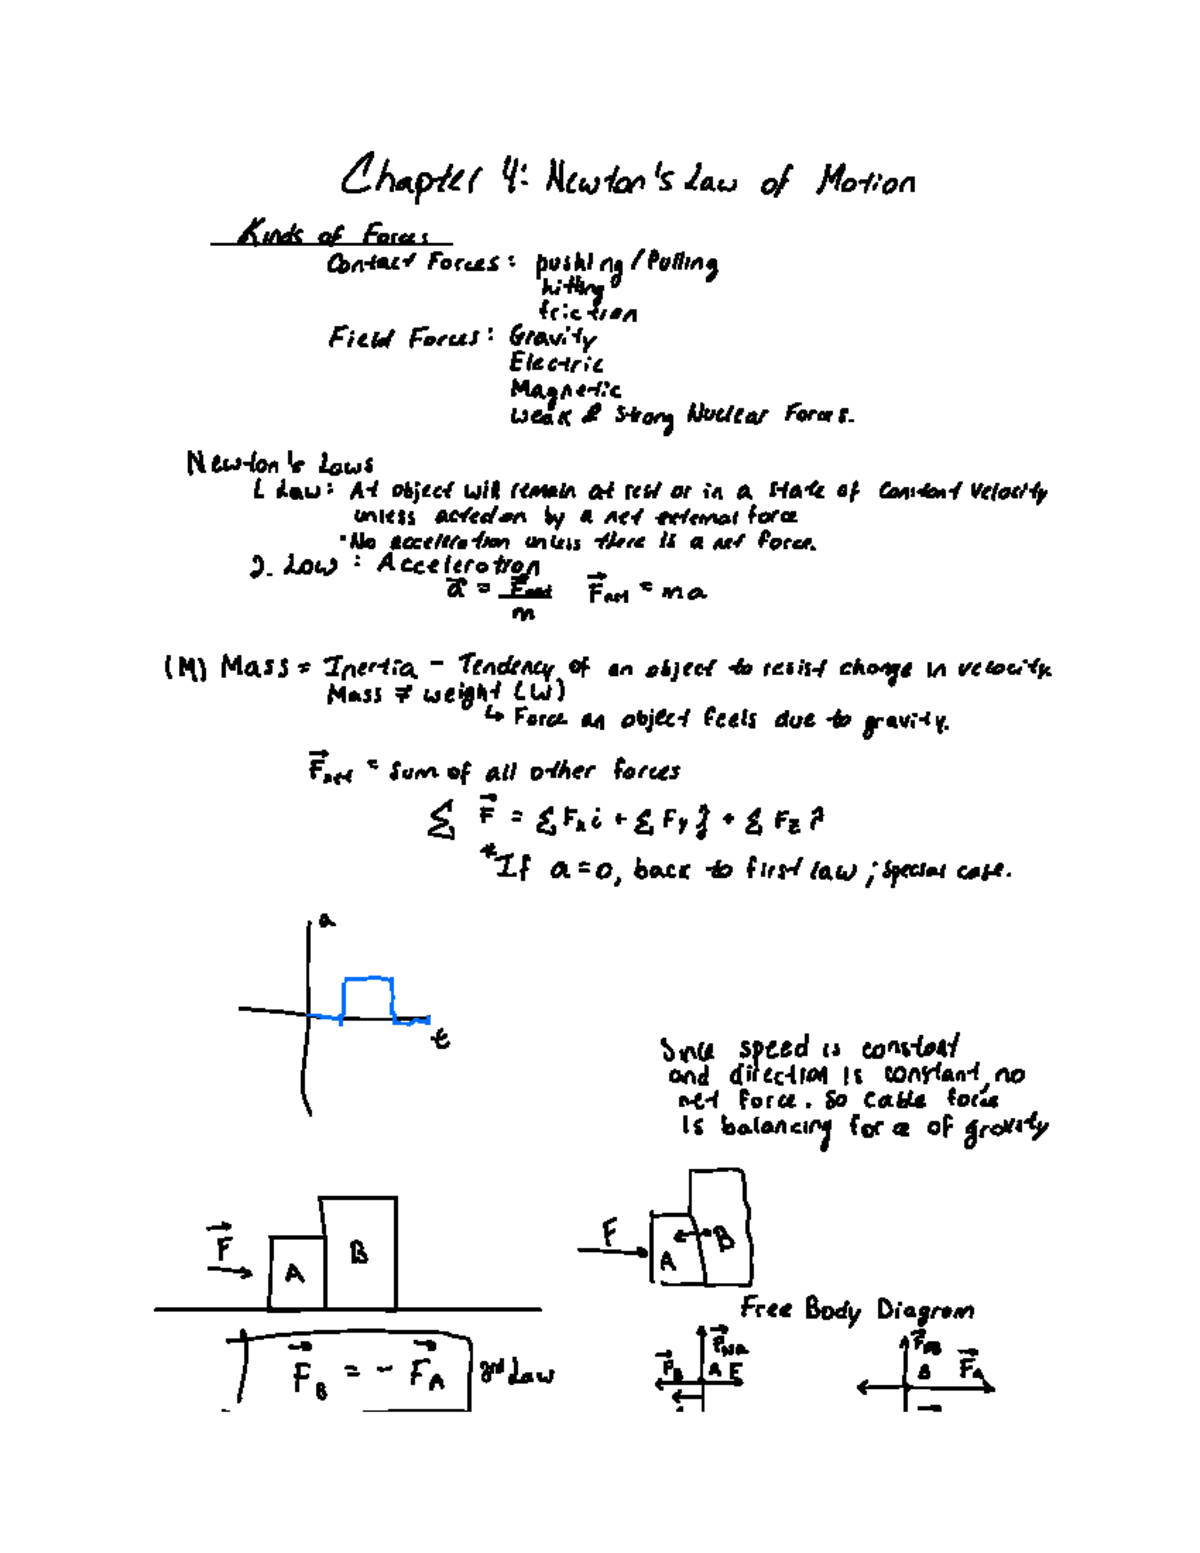 Chapter 4: Newton's Law of Motion
Kinds of Forces
Contact Forces: pushing/Pulling
hitting
friction
Field Forces: Gravity
Electric
Magnetic
weak & strong Nuclear Forces.
Newton's Laws
1 Law: At object will remain at rest or in a state of constant velocity
unless acted on by a net external force
•No acceleration unless there is a net force.
2. Law: Acceleration
a = Fnet/m Fnet = ma
(M) Mass = Inertia - Tendency of an object to resist change in velocity
Mass ≠ weight (W)
↳ Force an object feels due to gravity.
Fnet = sum of all other forces
Σ F = Σ Fx i + Σ Fy j + Σ Fz
*If a=0, back to first law; special case.
a
t
Since speed is constant
and direction is constant, no
net force. So cable force
is balancing force of gravity
F A B
F A B
Free Body Diagram
FB = - FA 3rd Law
A F
B FA